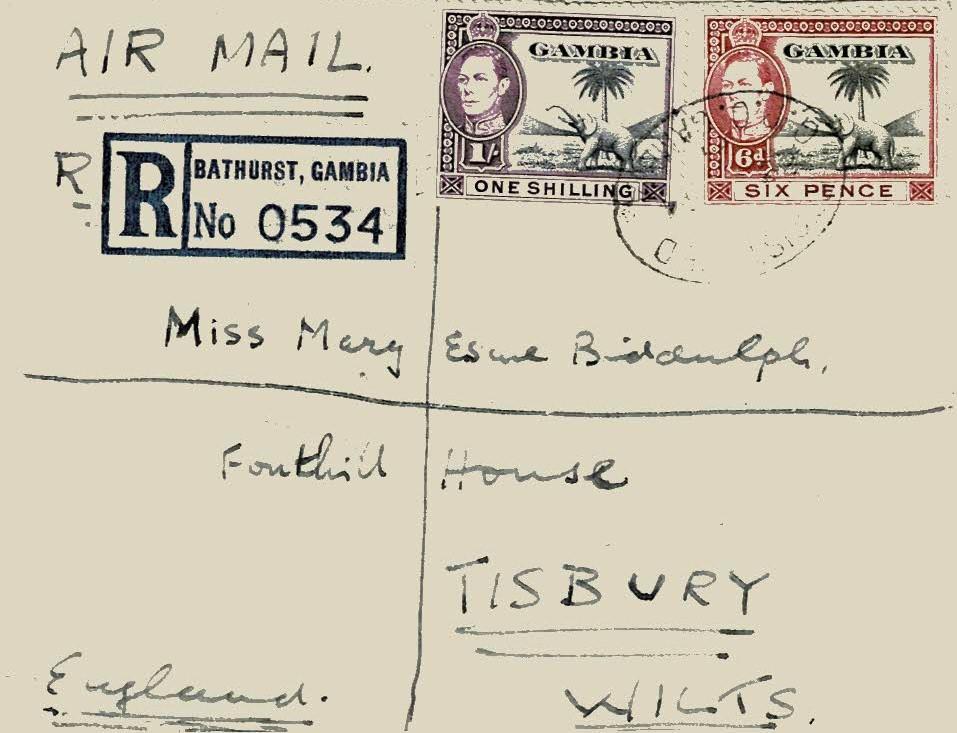 AIR MAIL.
GAMBIA
1/-
ONE SHILLING
GAMBIA
6d
SIX PENCE
R
R
BATHURST, GAMBIA
No 0534
Miss Mary Esme Biddulph,
Fonthill House
TISBURY
WILTS.
England.